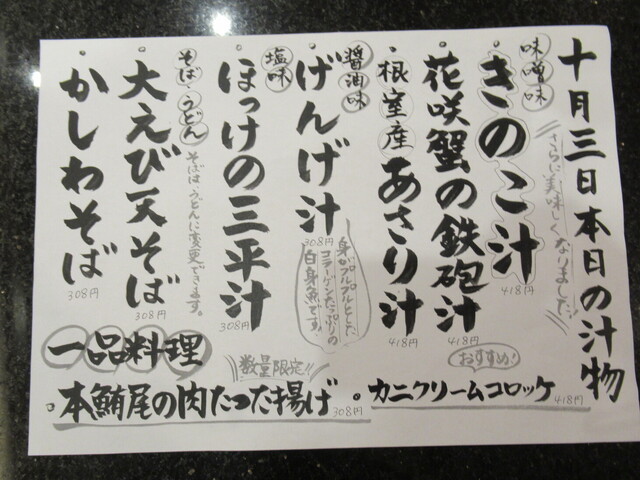 十月三日本日の汁物
味噌味
きのこ汁
418円
さらに美味しくなりました!
花咲蟹の鉄砲汁
418円
根室産あさり汁
418円
醤油味
げんげ汁
308円
身がプルプルとした
コラーゲンたっぷりの
白身魚です。
塩味
ほっけの三平汁
308円
そば・うどん
そばは、うどんに変更できます。
大えび天そば
308円
かしわそば
308円
一品料理
数量限定!!
本鮪尾の肉たつた揚げ
308円
おすすめ!
カニクリームコロッケ
418円